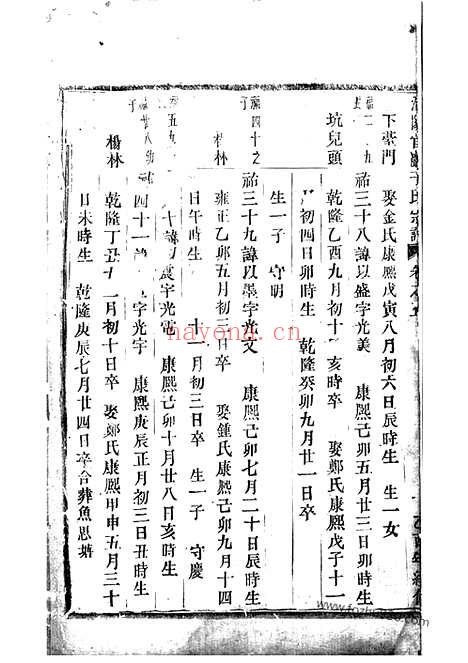 下塋門 娶金氏康熙戊寅八月初六日辰時生 生一女
祐三十八諱以盛字光美 康熙己卯五月廿三日卯時生
坑兒頭 乾隆乙酉九月初十 亥時卒 娶鄭氏康熙戊子十一
月初四日卯時生 乾隆癸卯九月廿一日卒
生一子 守明
福四十之子
祐三十九諱以 字光文 康熙己卯七月二十日辰時生
楊林 雍正乙卯五月初三 卒 娶鍾氏康熙己卯九月十四
日午時生 十一月初三日卒 生一子 守慶
十諱 震字光電 康熙己卯十月廿八日亥時生
四十一諱 字光宇 康熙庚辰正月初三日丑時生
楊林 乾隆丁丑十一月初十日卒 娶鄭氏康熙甲申五月三十
日未時生 乾隆庚辰七月廿四日卒合葬魚思塘
nayong.cn